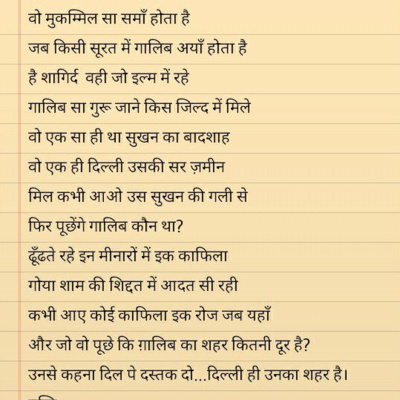 वो मुकम्मिल सा समाँ होता है
जब किसी सूरत में गालिब अयाँ होता है
है शागिर्द वही जो इल्म में रहे
गालिब सा गुरू जाने किस जिल्द में मिले
वो एक सा ही था सुखन का बादशाह
वो एक ही दिल्ली उसकी सर ज़मीन
मिल कभी आओ उस सुखन की गली से
फिर पूछेंगे गालिब कौन था?
ढूँढते रहे इन मीनारों में इक काफिला
गोया शाम की शिद्दत में आदत सी रही
कभी आए कोई काफिला इक रोज जब यहाँ
और जो वो पूछे कि ग़ालिब का शहर कितनी दूर है?
उनसे कहना दिल पे दस्तक दो...दिल्ली ही उनका शहर है।